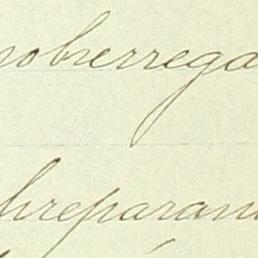 sobrerrega
breparan